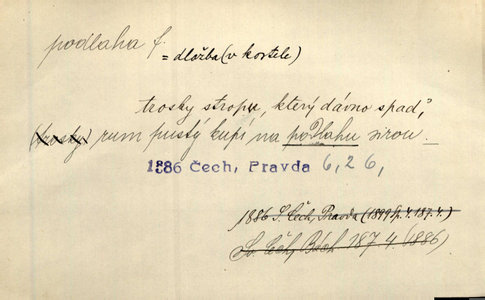 podlaha f.
= dlažba (v kostele)
trosky stropu, který dávno spad,
(trosky) rum pustý kupí na podlahu sirou_
1886 Čech, Pravda 6, 26,
1886 S. Čech, Pravda (1899 p. 4. 187. 4.)
Sv. Čech, 187 4. (1886)